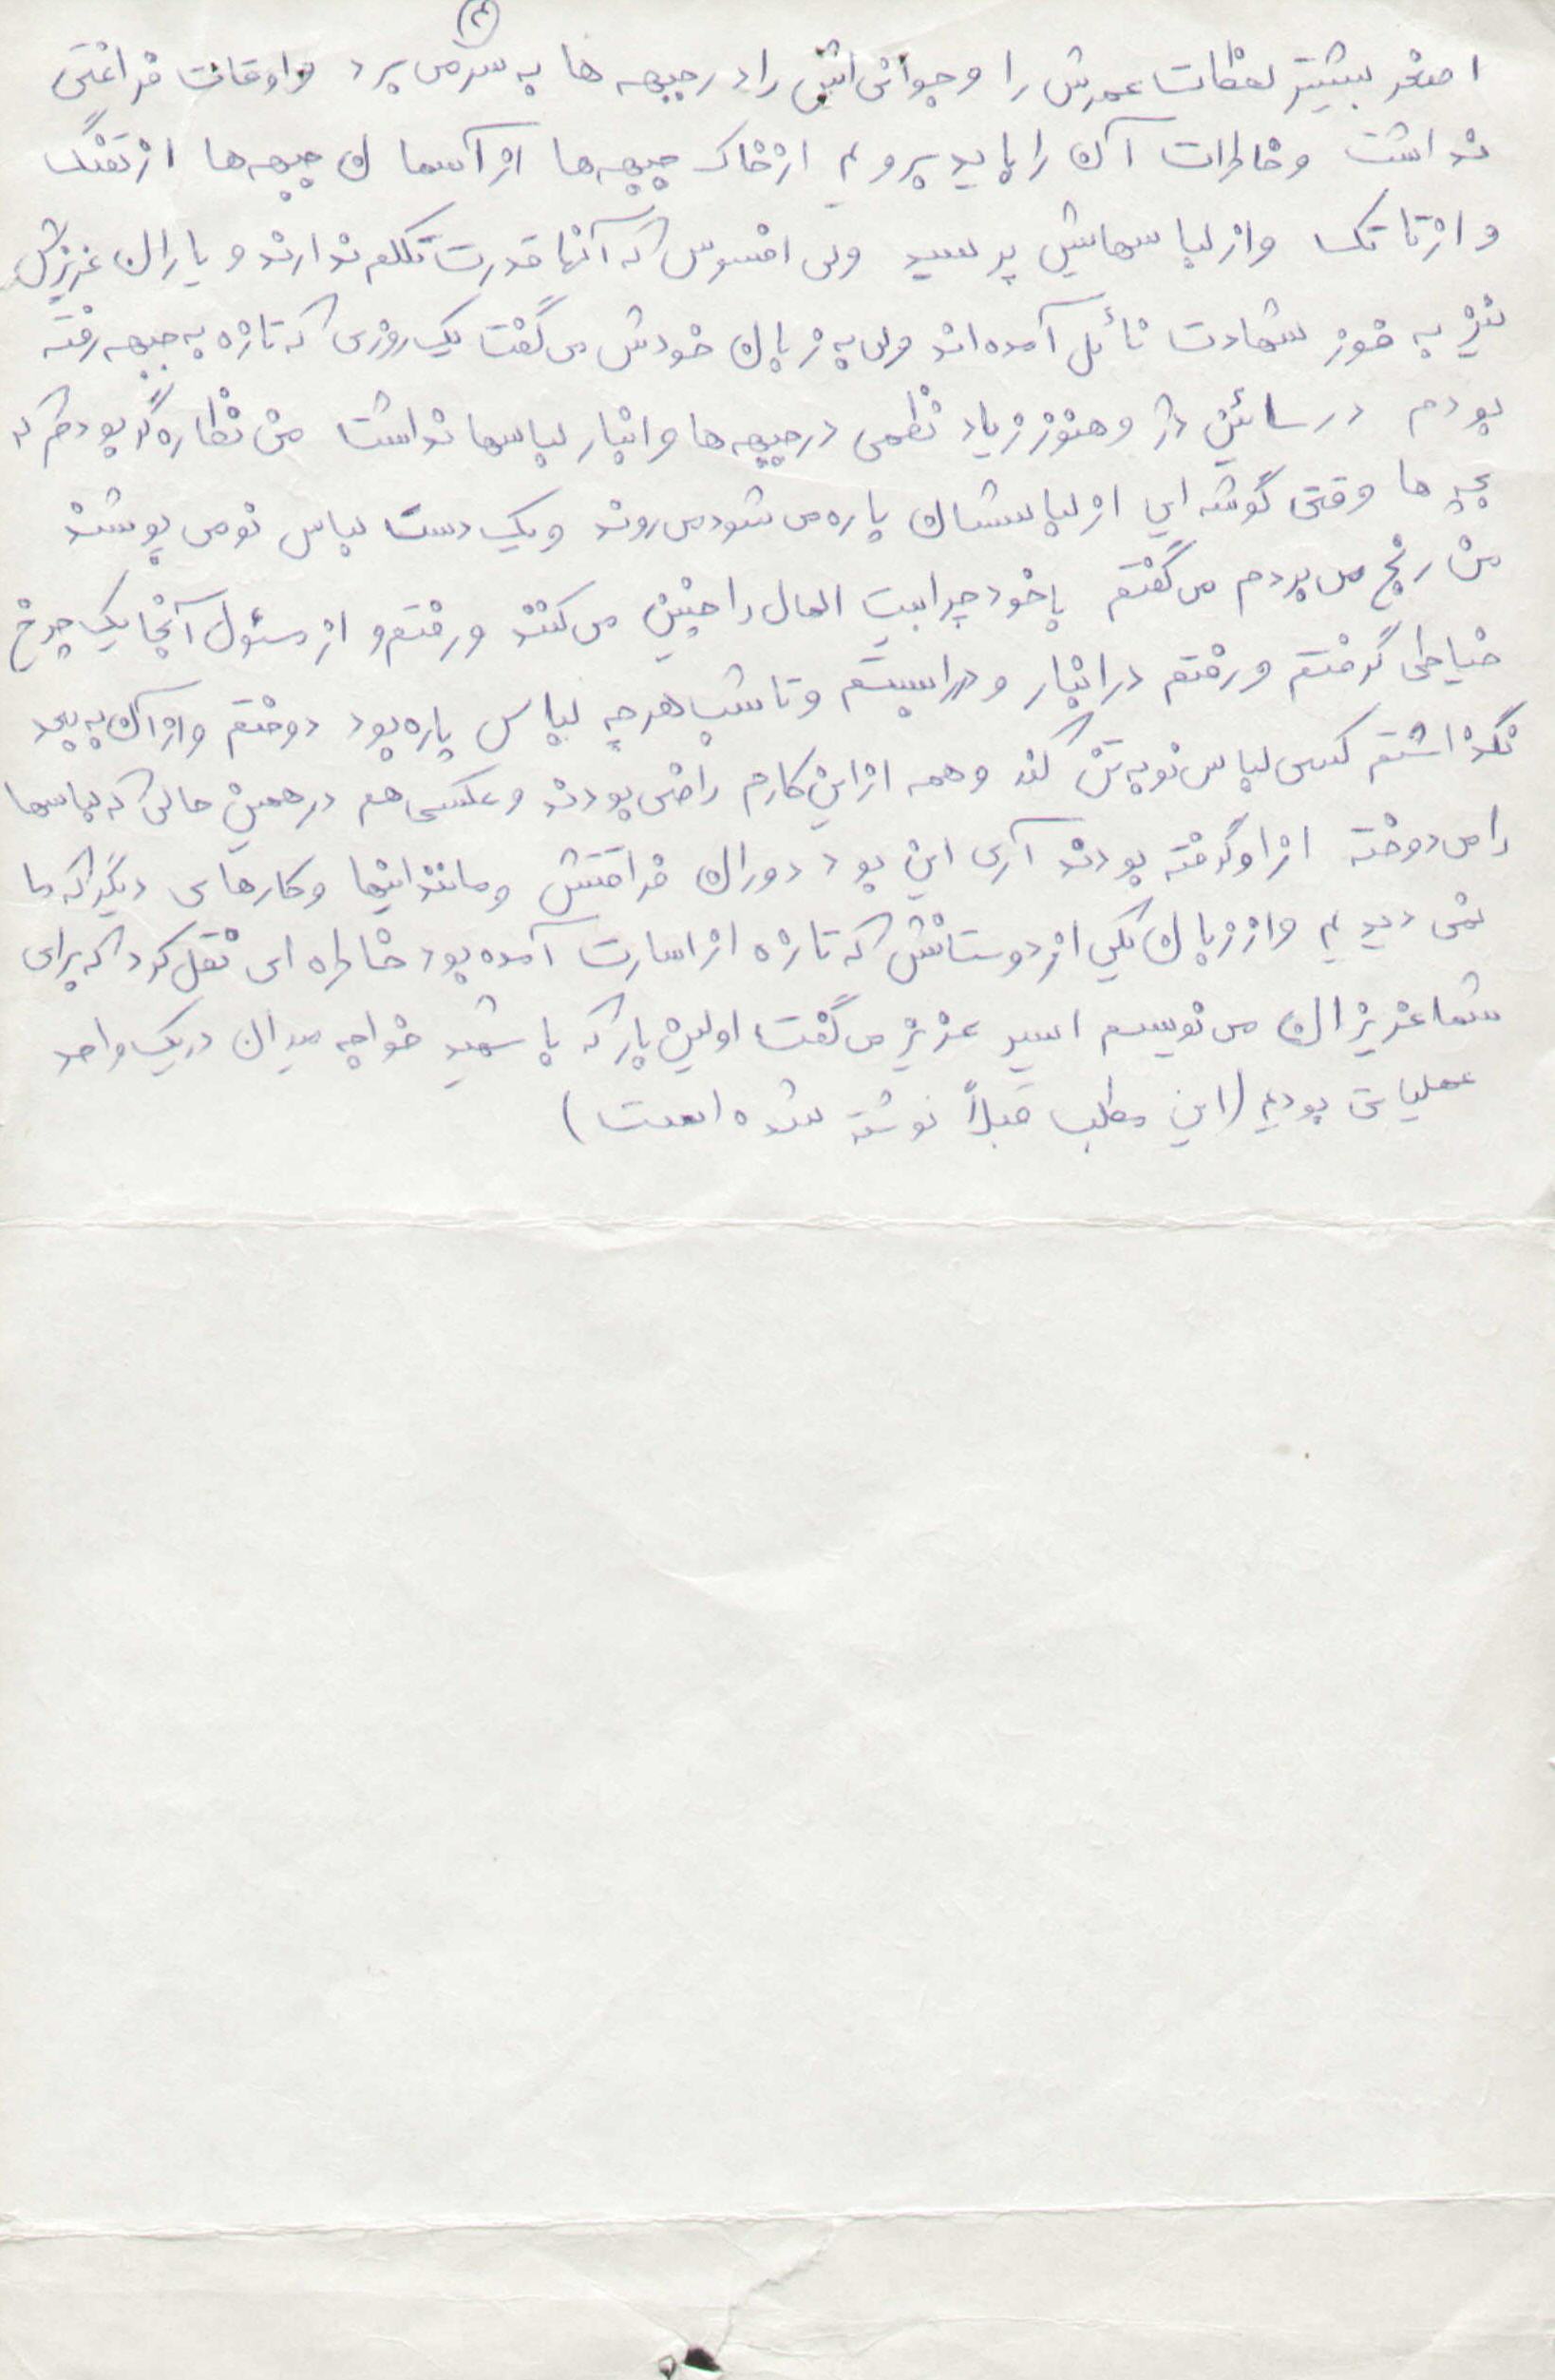 ۳
اصغر بیشتر لحظات عمرش را و جوانی اش را در جبهه ها به سر می برد و اوقات فراغتی
نداشت و خاطرات آن را باید برویم از خاک جبهه ها از آسمان جبهه ها از تفنگ
و از تانک و از لباسهایش پرسید ولی افسوس که آنها قدرت تکلم ندارند و یاران عزیزش
نیز به فوز شهادت نائل آمده اند ولی به زبان خودش می گفت یک روزی که تازه به جبهه رفته
بودم در سائین دژ و هنوز زیاد نظمی در جبهه ها و انبار لباسها نداشت من نظاره گر بودم که
بچه ها وقتی گوشه ای از لباسشان پاره می شود می روند و یک دست لباس نو می پوشند
من رنج می بردم می گفتم با خود چرا بیت المال را چنین می کنند و رفتم و از مسئول آنجا یک چرخ
خیاطی گرفتم و رفتم در انبار و درا بستم و تا شب هر چه لباس پاره بود دوختم و از آن به بعد
نگذاشتم کسی لباس نو به تن کند و همه از این کارم راضی بودند و عکسی هم در همین حالی که لباسها
را می دوخته از او گرفته بودند آری این بود دوران فراقتش و مانند اینها و کارهای دیگر که ما
نمی دیدیم و از زبان یکی از دوستانش که تازه از اسارت آمده بود خاطره ای نقل کرد که برای
شما عزیزان می نویسم اسیر عزیز می گفت اولین بار که با شهید خواجه میدان در یک واحد
عملیاتی بودیم (این مطلب قبلاً نوشته شده است)